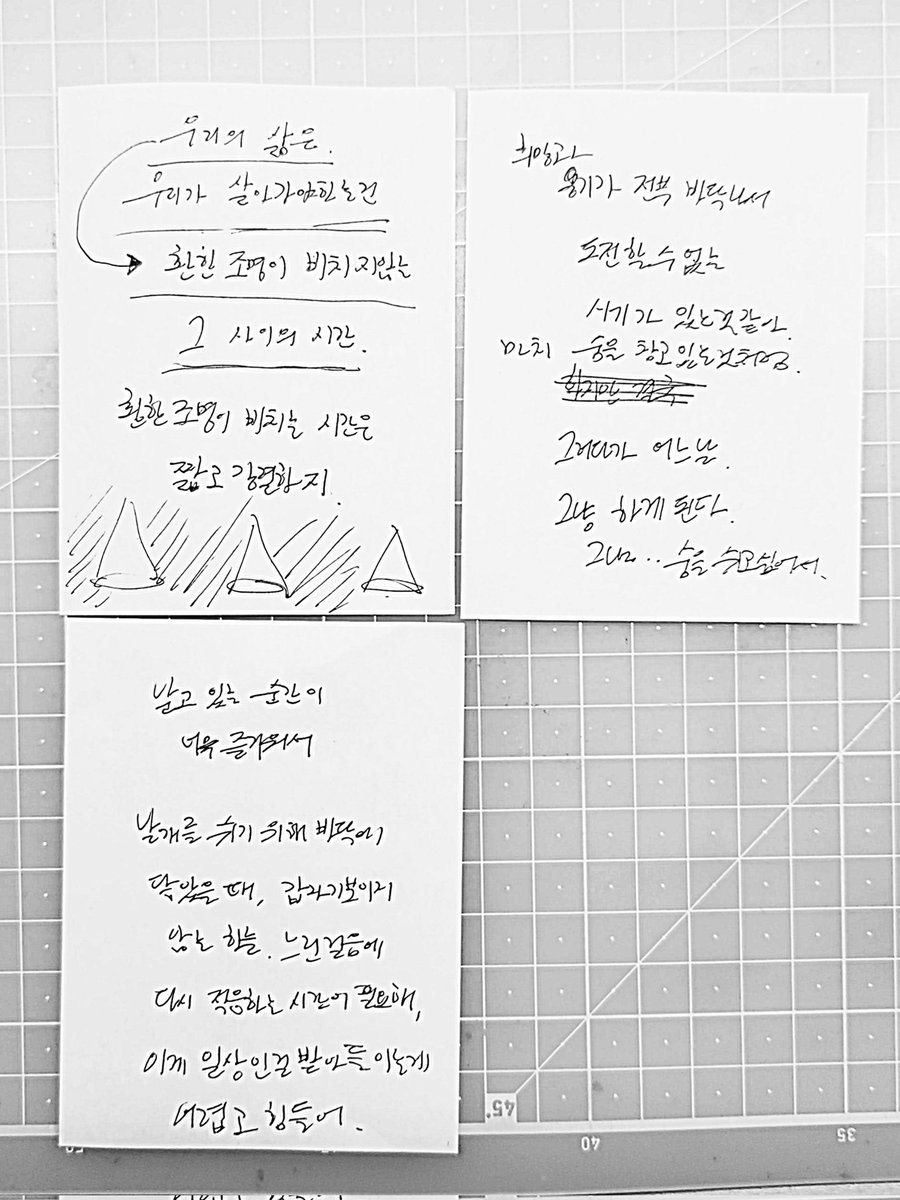 우리의 삶은.
우리가 살아가야하는건
환한 조명이 비치지않는
그 사이의 시간.
환한 조명이 비치는 시간은
짧고 강렬하지.
희망과
용기가 전쁙 바닥나서
도전할 수 없는
시기가 있는것 같아.
마치 숨을 참고있는것처럼.
하지만 결국
그러다가 어느날.
그냥 하게 된다.
그냥... 숨을 쉬고싶어서.
날고 있는 순간이
너무 즐거워서
날개를 쉬기 위해 바닥에
닿았을 때, 갑자기보이지
않는 하늘. 느린걸음에
다시 적응하는 시간이 필요해,
이게 일상인걸 받아들이는게
어렵고 힘들어.
45°
50
40
35